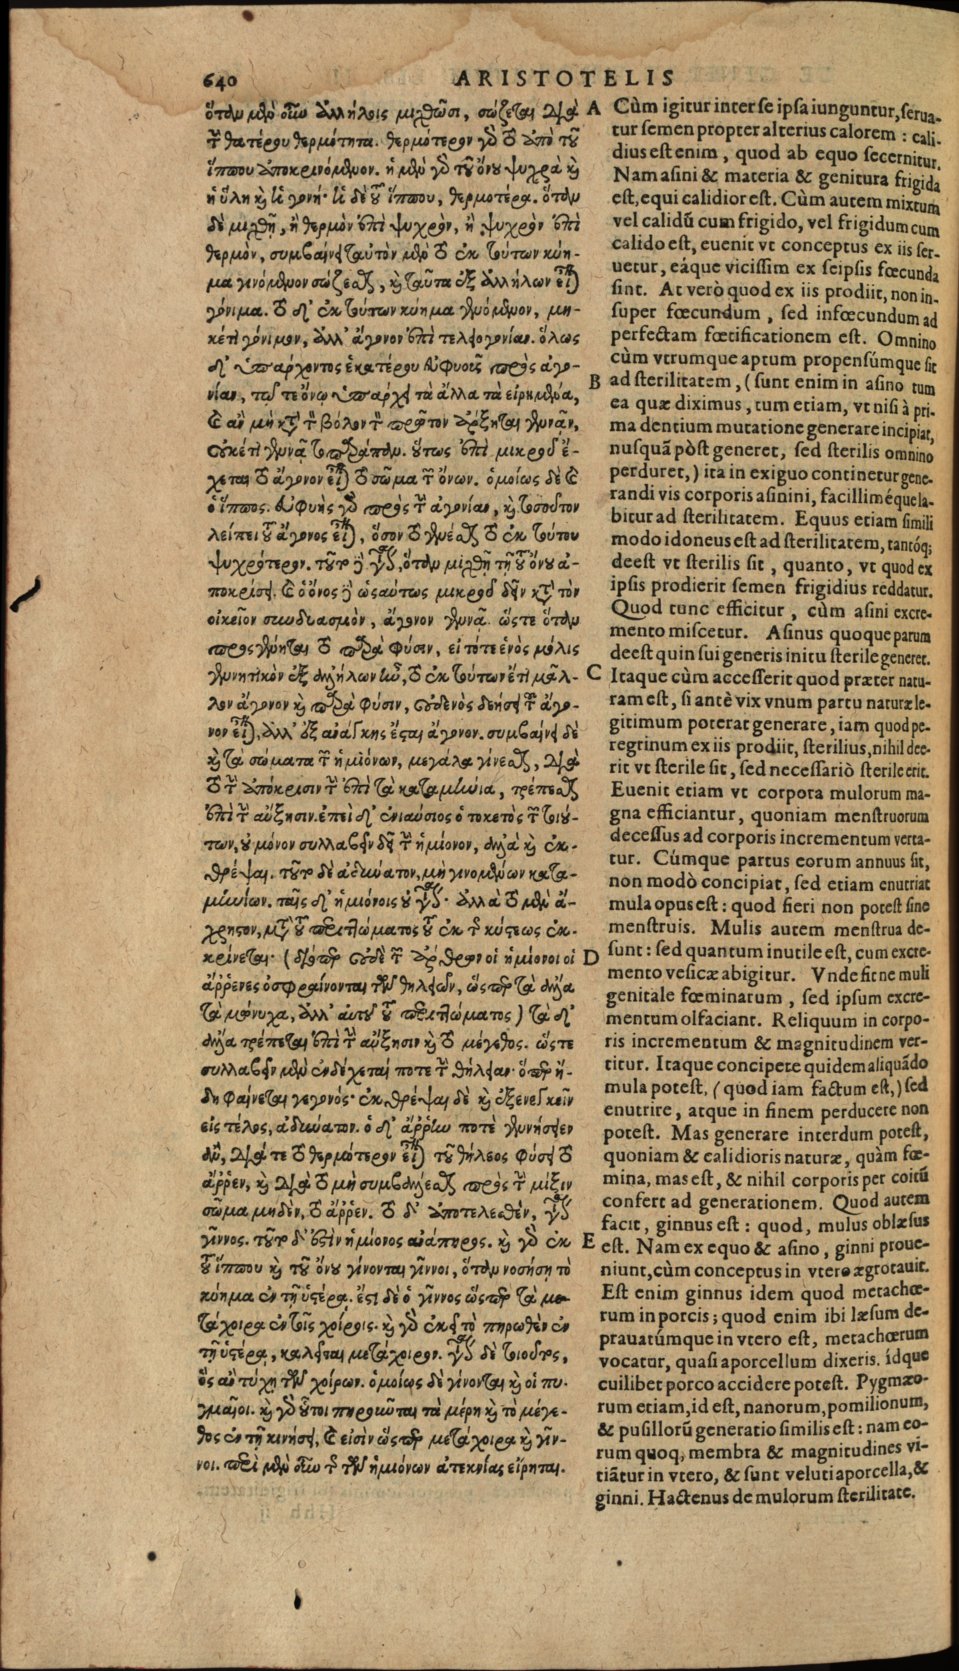 640 ARISTOTELIS
ὅταν μὲν οὖν ἀλλήλοις μιχθῶσι, σώζεται διὰ
τὴν θατέρου θερμότητα. θερμότερον γὰρ τὸ ἀπὸ τοῦ
ἵππου ἀποκρινόμενον. ἡ μὲν γὰρ τοῦ ὄνου ψυχρὰ καὶ
ἡ ὕλη καὶ ἡ γονή· ἡ δὲ τοῦ ἵππου, θερμοτέρα. ὅταν
δὲ μιχθῇ, ἢ θερμὸν ἐπὶ ψυχρὸν, ἢ ψυχρὸν ἐπὶ
θερμὸν, συμβαίνει ταὐτὸν μὲν τὸ ἐκ τούτων κύη-
μα γινόμενον σώζεσθαι, καὶ ταῦτα ἐξ ἀλλήλων εἶναι
γόνιμα. τὸ δ' ἐκ τούτων κύημα γενόμενον, μη-
κέτι γόνιμον, ἀλλ' ἄγονον ἐπὶ τελεογονίαν. ὅλως
δ' ὑπάρχοντος ἑκατέρου εὐφυοῦς πρὸς ἀγο-
νίαν, τῷ τε ὄνῳ ὑπάρχει τὰ ἄλλα τὰ εἰρημένα,
καὶ ἂν μὴ κατὰ τὸν βόλον τὸν πρῶτον ἄρξηται γεννᾶν,
οὐκέτι γεννᾷ τοπαράπαν. οὕτως ἐπὶ μικροῦ ἔ-
χεται τὸ ἄγονον εἶναι τὸ σῶμα τῶν ὄνων. ὁμοίως δὲ καὶ
ὁ ἵππος. εὐφυὴς γὰρ πρὸς τὴν ἀγονίαν, καὶ τοσοῦτον
λείπει τοῦ ἄγονος εἶναι, ὅσον τὸ γενέσθαι τὸ ἐκ τούτου
ψυχρότερον. τοῦτο δὲ γίνεται, ὅταν μιχθῇ τῇ τοῦ ὄνου ἀ-
ποκρίσει. καὶ ὁ ὄνος δὲ ὡσαύτως μικροῦ δεῖν κατὰ τὸν
οἰκεῖον συνδυασμὸν, ἄγονον γεννᾷ. ὥστε ὅταν
προσγένηται τὸ παρὰ φύσιν, εἰ τότε ἑνὸς μόλις
γεννητικὸν ἐξ ἀλλήλων ἦν, τὸ ἐκ τούτων ἔτι μᾶλ-
λον ἄγονον καὶ παρὰ φύσιν, οὐδενὸς δεήσει τοῦ ἄγο-
νον εἶναι, ἀλλ' ἐξ ἀνάγκης ἔσται ἄγονον. συμβαίνει δὲ
καὶ τὰ σώματα τῶν ἡμιόνων, μεγάλα γίνεσθαι, διὰ
τὸ τὴν ἀπόκρισιν τὴν ἐπὶ τὰ καταμήνια, τρέπεσθαι
ἐπὶ τὴν αὔξησιν. ἐπεὶ δ' ἐνιαύσιος ὁ τοκετὸς τῶν τοιού-
των, οὐ μόνον συλλαβεῖν δεῖ τὴν ἡμίονον, ἀλλὰ καὶ ἐκ-
θρέψαι. τοῦτο δὲ ἀδύνατον, μὴ γινομένων κατα-
μηνίων. ταῖς δ' ἡμιόνοις οὐ γίνεται· ἀλλὰ τὸ μὲν ἄ-
χρηστον, μετὰ τοῦ περιττώματος τοῦ ἐκ τῆς κύστεως ἐκ-
κρίνεται· (διόπερ οὐδὲ τῶν ἄρθρων οἱ ἡμίονοι οἱ
ἄῤῥενες ὀσφραίνονται τῶν θηλειῶν, ὥσπερ τὰ ἄλλα
τὰ μώνυχα, ἀλλ' αὐτοῦ τοῦ περιττώματος) τὰ δ'
ἄλλα τρέπεται ἐπὶ τὴν αὔξησιν καὶ τὸ μέγεθος. ὥστε
συλλαβεῖν μὲν ἐνδέχεταί ποτε τὴν θήλειαν· ὅπερ ἤ-
δη φαίνεται γεγονός· ἐκθρέψαι δὲ καὶ ἐξενεγκεῖν
εἰς τέλος, ἀδύνατον. ὁ δ' ἄῤῥην ποτὲ γεννήσειεν
ἂν, διά τε τὸ θερμότερον εἶναι τοῦ θήλεος φύσει τὸ
ἄῤῥεν, καὶ διὰ τὸ μὴ συμβάλλεσθαι πρὸς τὴν μίξιν
σῶμα μηδὲν, τὸ ἄῤῥεν. τὸ δ' ἀποτελεσθὲν, γίνεται
γίννος. τοῦτο δ' ἐστὶν ἡμίονος ἀνάπηρος. καὶ γὰρ ἐκ
τοῦ ἵππου καὶ τοῦ ὄνου γίνονται γίννοι, ὅταν νοσήσῃ τὸ
κύημα ἐν τῇ ὑστέρᾳ. ἔστι δὲ ὁ γίννος ὥσπερ τὰ με-
τάχοιρα ἐν τοῖς χοίροις. καὶ γὰρ ἐκεῖ τὸ πηρωθὲν ἐν
τῇ ὑστέρᾳ, καλεῖται μετάχοιρον. γίνεται δὲ τοιοῦτος,
ὃς ἂν τύχῃ τῶν χοίρων. ὁμοίως δὲ γίνονται καὶ οἱ πυ-
γμαῖοι. καὶ γὰρ οὗτοι πηροῦνται τὰ μέρη καὶ τὸ μέγε-
θος ἐν τῇ κινήσει, καὶ εἰσὶν ὥσπερ μετάχοιρα καὶ γίν-
νοι. περὶ μὲν οὖν τῆς τῶν ἡμιόνων ἀτεκνίας εἴρηται.
A Cùm igitur inter se ipsa iunguntur, serua-
tur semen propter alterius calorem : cali-
dius est enim, quod ab equo secernitur.
Nam asini & materia & genitura frigida
est, equi calidior est. Cùm autem mixtum
vel calidũ cum frigido, vel frigidum cum
calido est, euenit vt conceptus ex iis ser-
uetur, eáque vicissim ex seipsis fœcunda
sint. At verò quod ex iis prodiit, non in-
super fœcundum, sed infœcundum ad
perfectam fœtificationem est. Omnino
cùm vtrumque aptum propensúmque sit
B ad sterilitatem, (sunt enim in asino tum
ea quæ diximus, tum etiam, vt nisi à pri-
ma dentium mutatione generare incipiat,
nusquã pòst generet, sed sterilis omnino
perduret,) ita in exiguo continetur gene-
randi vis corporis asinini, facilliméque la-
bitur ad sterilitatem. Equus etiam simili
modo idoneus est ad sterilitatem, tantóq;
deest vt sterilis sit, quanto, vt quod ex
ipsis prodierit semen frigidius reddatur.
Quod tunc efficitur, cùm asini excre-
mento miscetur. Asinus quoque parum
deest quin sui generis initu sterile generet.
C Itaque cùm accesserit quod præter natu-
ram est, si antè vix vnum partu naturæ le-
gitimum poterat generare, iam quod pe-
regrinum ex iis prodiit, sterilius, nihil dee-
rit vt sterile sit, sed necessariò sterile erit.
Euenit etiam vt corpora mulorum ma-
gna efficiantur, quoniam menstruorum
decessus ad corporis incrementum verta-
tur. Cúmque partus eorum annuus sit,
non modò concipiat, sed etiam enutriat
mula opus est : quod fieri non potest sine
menstruis. Mulis autem menstrua de-
D sunt : sed quantum inutile est, cum excre-
mento vesicæ abigitur. Vnde fit ne muli
genitale fœminarum, sed ipsum excre-
mentum olfaciant. Reliquum in corpo-
ris incrementum & magnitudinem ver-
titur. Itaque concipere quidem aliquãdo
mula potest, (quod iam factum est,) sed
enutrire, atque in finem perducere non
potest. Mas generare interdum potest,
quoniam & calidioris naturæ, quàm fœ-
mina, mas est, & nihil corporis per coitũ
confert ad generationem. Quod autem
facit, ginnus est : quod, mulus oblæsus
E est. Nam ex equo & asino, ginni proue-
niunt, cùm conceptus in vtero ægrotauit.
Est enim ginnus idem quod metachœ-
rum in porcis; quod enim ibi læsum de-
prauatúmque in vtero est, metachœrum
vocatur, quasi aporcellum dixeris. ídque
cuilibet porco accidere potest. Pygmæo-
rum etiam, id est, nanorum, pomilionum,
& pusillorũ generatio similis est : nam eo-
rum quoq; membra & magnitudines vi-
tiãtur in vtero, & sunt veluti aporcella, &
ginni. Hactenus de mulorum sterilitate.